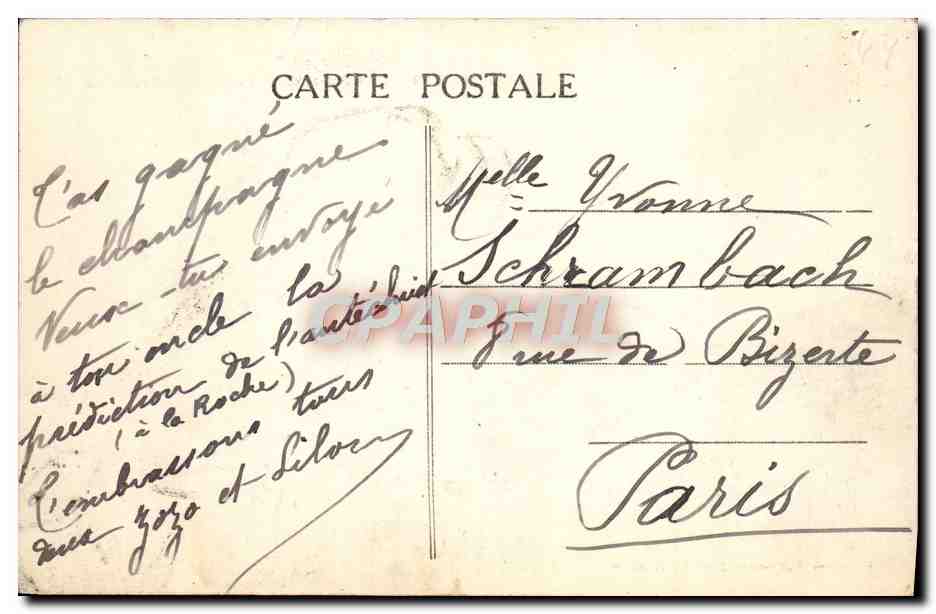 CARTE POSTALE
T'as gagné
le champagne
Veux-tu envoyé
à ton oncle la
prédiction de l'antéchrist
(à la Roche)
T'embrassons tous
deux Zozo et
Melle Yvonne
Schrambach
8 rue de Bizerte
Paris
CPAPHIL